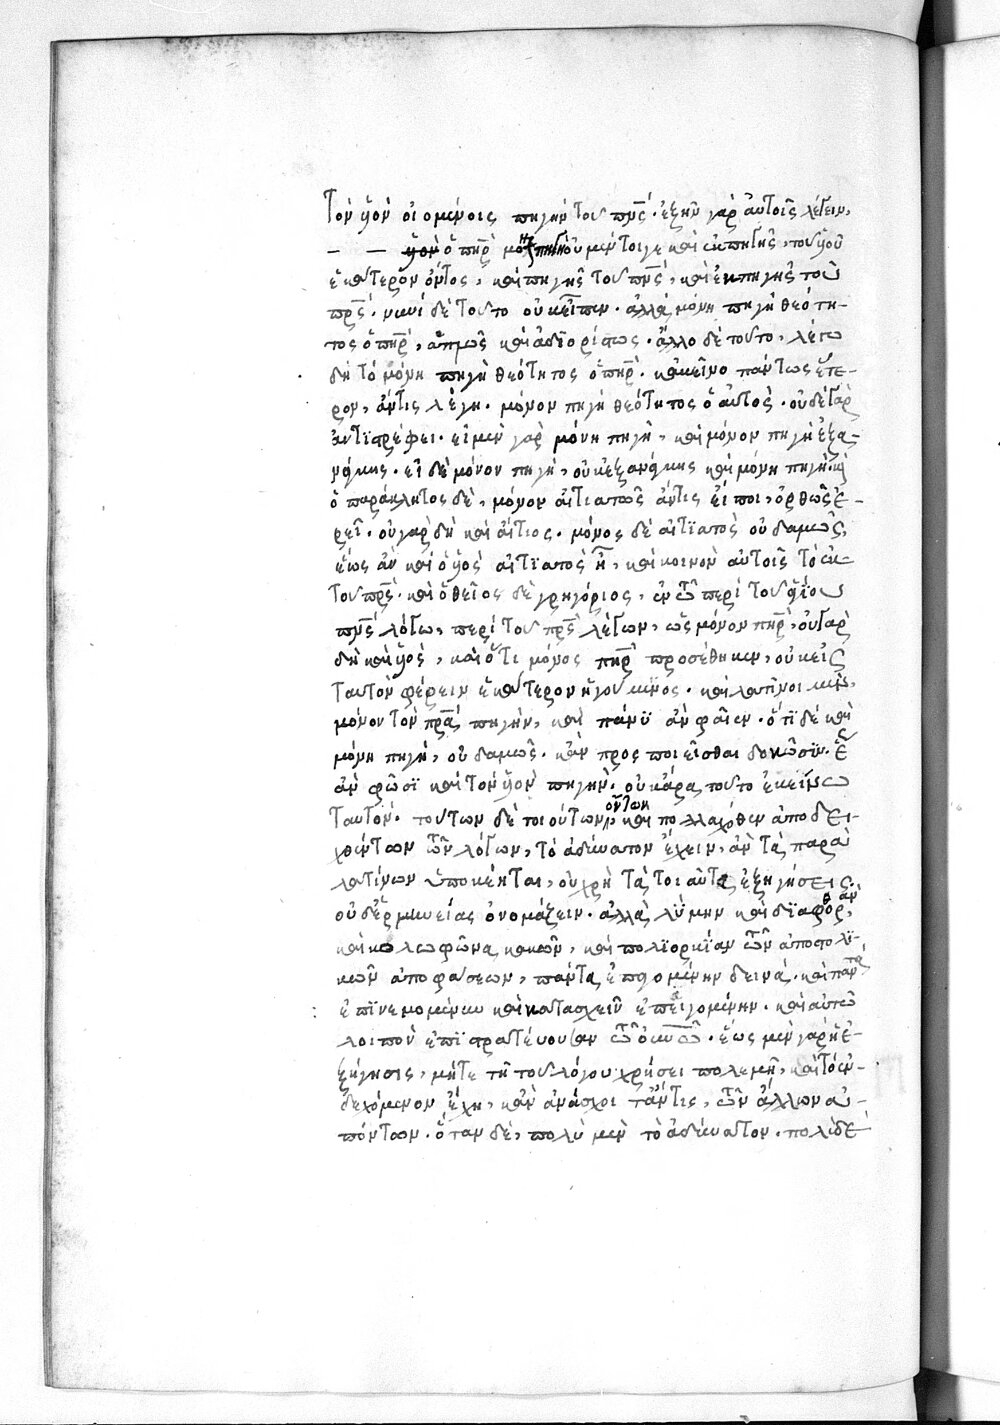 τὸν υἱὸν οἰομένοις πηγὴν τοῦ πνς. ἐξῆν γὰρ αὐτοῖς λέγειν,
ὁ πηρ μόνη πηγὴ οὐ μέντοιγε καὶ ἐκ πηγῆς, τοῦ υἱοῦ
ἑκάτερον ὄντος, καὶ πηγῆς τοῦ πνς, καὶ ἐκ πηγῆς τοῦ
πρς. νυνὶ δὲ τοῦτο οὐκ εἶπεν. ἀλλὰ μόνη πηγὴ θεότη-
τος ὁ πηρ, ἁπλῶς καὶ ἀδιορίστως. ἄλλο δὲ τοῦτο, λέγω
δὴ τὸ μόνη πηγὴ θεότητος ὁ πηρ. κἀκεῖνο πάντως ἕτε-
ρον, ἄν τις λέγη. μόνον πηγὴ θεότητος ὁ αὐτὸς. οὐδὲ γὰρ
ἀντιστρέφει. εἰ μὲν γὰρ μόνη πηγὴ, καὶ μόνον πηγὴ ἐξα-
νάγκης. εἰ δὲ μόνον πηγὴ, οὐκ ἐξανάγκης καὶ μόνη πηγὴ. καὶ
ὁ παράκλητος δὲ, μόνον αἰτιατὸς ἄν τις εἴποι, ὀρθῶς ἐ-
ρεῖ. οὐ γὰρ δὴ καὶ αἴτιος. μόνος δὲ αἰτιατὸς οὐδαμῶς,
ἕως ἂν καὶ ὁ υἱὸς αἰτιατὸς ἦ, καὶ κοινὸν αὐτοῖς τὸ ἐκ
τοῦ πρς. καὶ ὁ θεῖος δὲ γρηγόριος, ἐν τῶ περὶ τοῦ ἁγίου
πνς λόγω, περὶ τοῦ πρς λέγων, ὡς μόνον πηρ, οὐ γὰρ
δὴ καὶ υἱὸς, καὶ ὅτι μόνος πηρ προσέθηκεν, οὐκ εἰς
ταυτὸν φέρειν ἑκάτερον ἡγούμενος. καὶ λατῖνοι μὲν,
μόνον τὸν πρα πηγὴν, καὶ πάνυ ἂν φαῖεν. ὅτι δὲ καὶ
μόνη πηγὴ, οὐδαμῶς. κἂν προσποιεῖσθαι δοκῶσιν. ἕως
ἂν φῶσι καὶ τὸν υἱὸν πηγὴν. οὐκ ἄρα τοῦτο ἐκείνω
ταυτόν. τούτων δὲ τοιούτων ὄντων καὶ πολλαχόθεν ἀποδει-
χθέντων τῶν λόγων, τὸ ἀδύνατον ἔχειν, ἂν τὰ παρὰ
λατίνων ὑποκέηται, οὐ χρὴ τὰς τοιαύτας ἐξηγήσεις,
οὐδ' ἑρμηνείας ὀνομάζειν. ἀλλὰ λύμην καὶ διαφθορὰν,
καὶ κολοφῶνα κακῶν, καὶ πολιορκίαν τῶν ἀποστολι-
κῶν ἀποφάσεων, πάντα ἐποομένην δεινὰ. καὶ πάντα
ἐπινεμομένω καὶ κατασχεῖν ἐπειγομένην. καὶ αὐτῶ
λοιπὸν ἐπιστρατεύουσαν τῶ θῶ. ἕως μὲν γὰρ ἡ ἐ-
ξήγησις, μήτε τῆ τοῦ λόγου χρήσει πολεμῆ, καὶ τὸ ἐν-
δεχόμενον ἔχη, κἂν ἀνάσχοι τ' ἄν τις, τῶν ἄλλων ἀ-
πόντων. ὅταν δὲ, πολὺ μὲν τὸ ἀδύνατον. πολὺ δὲ